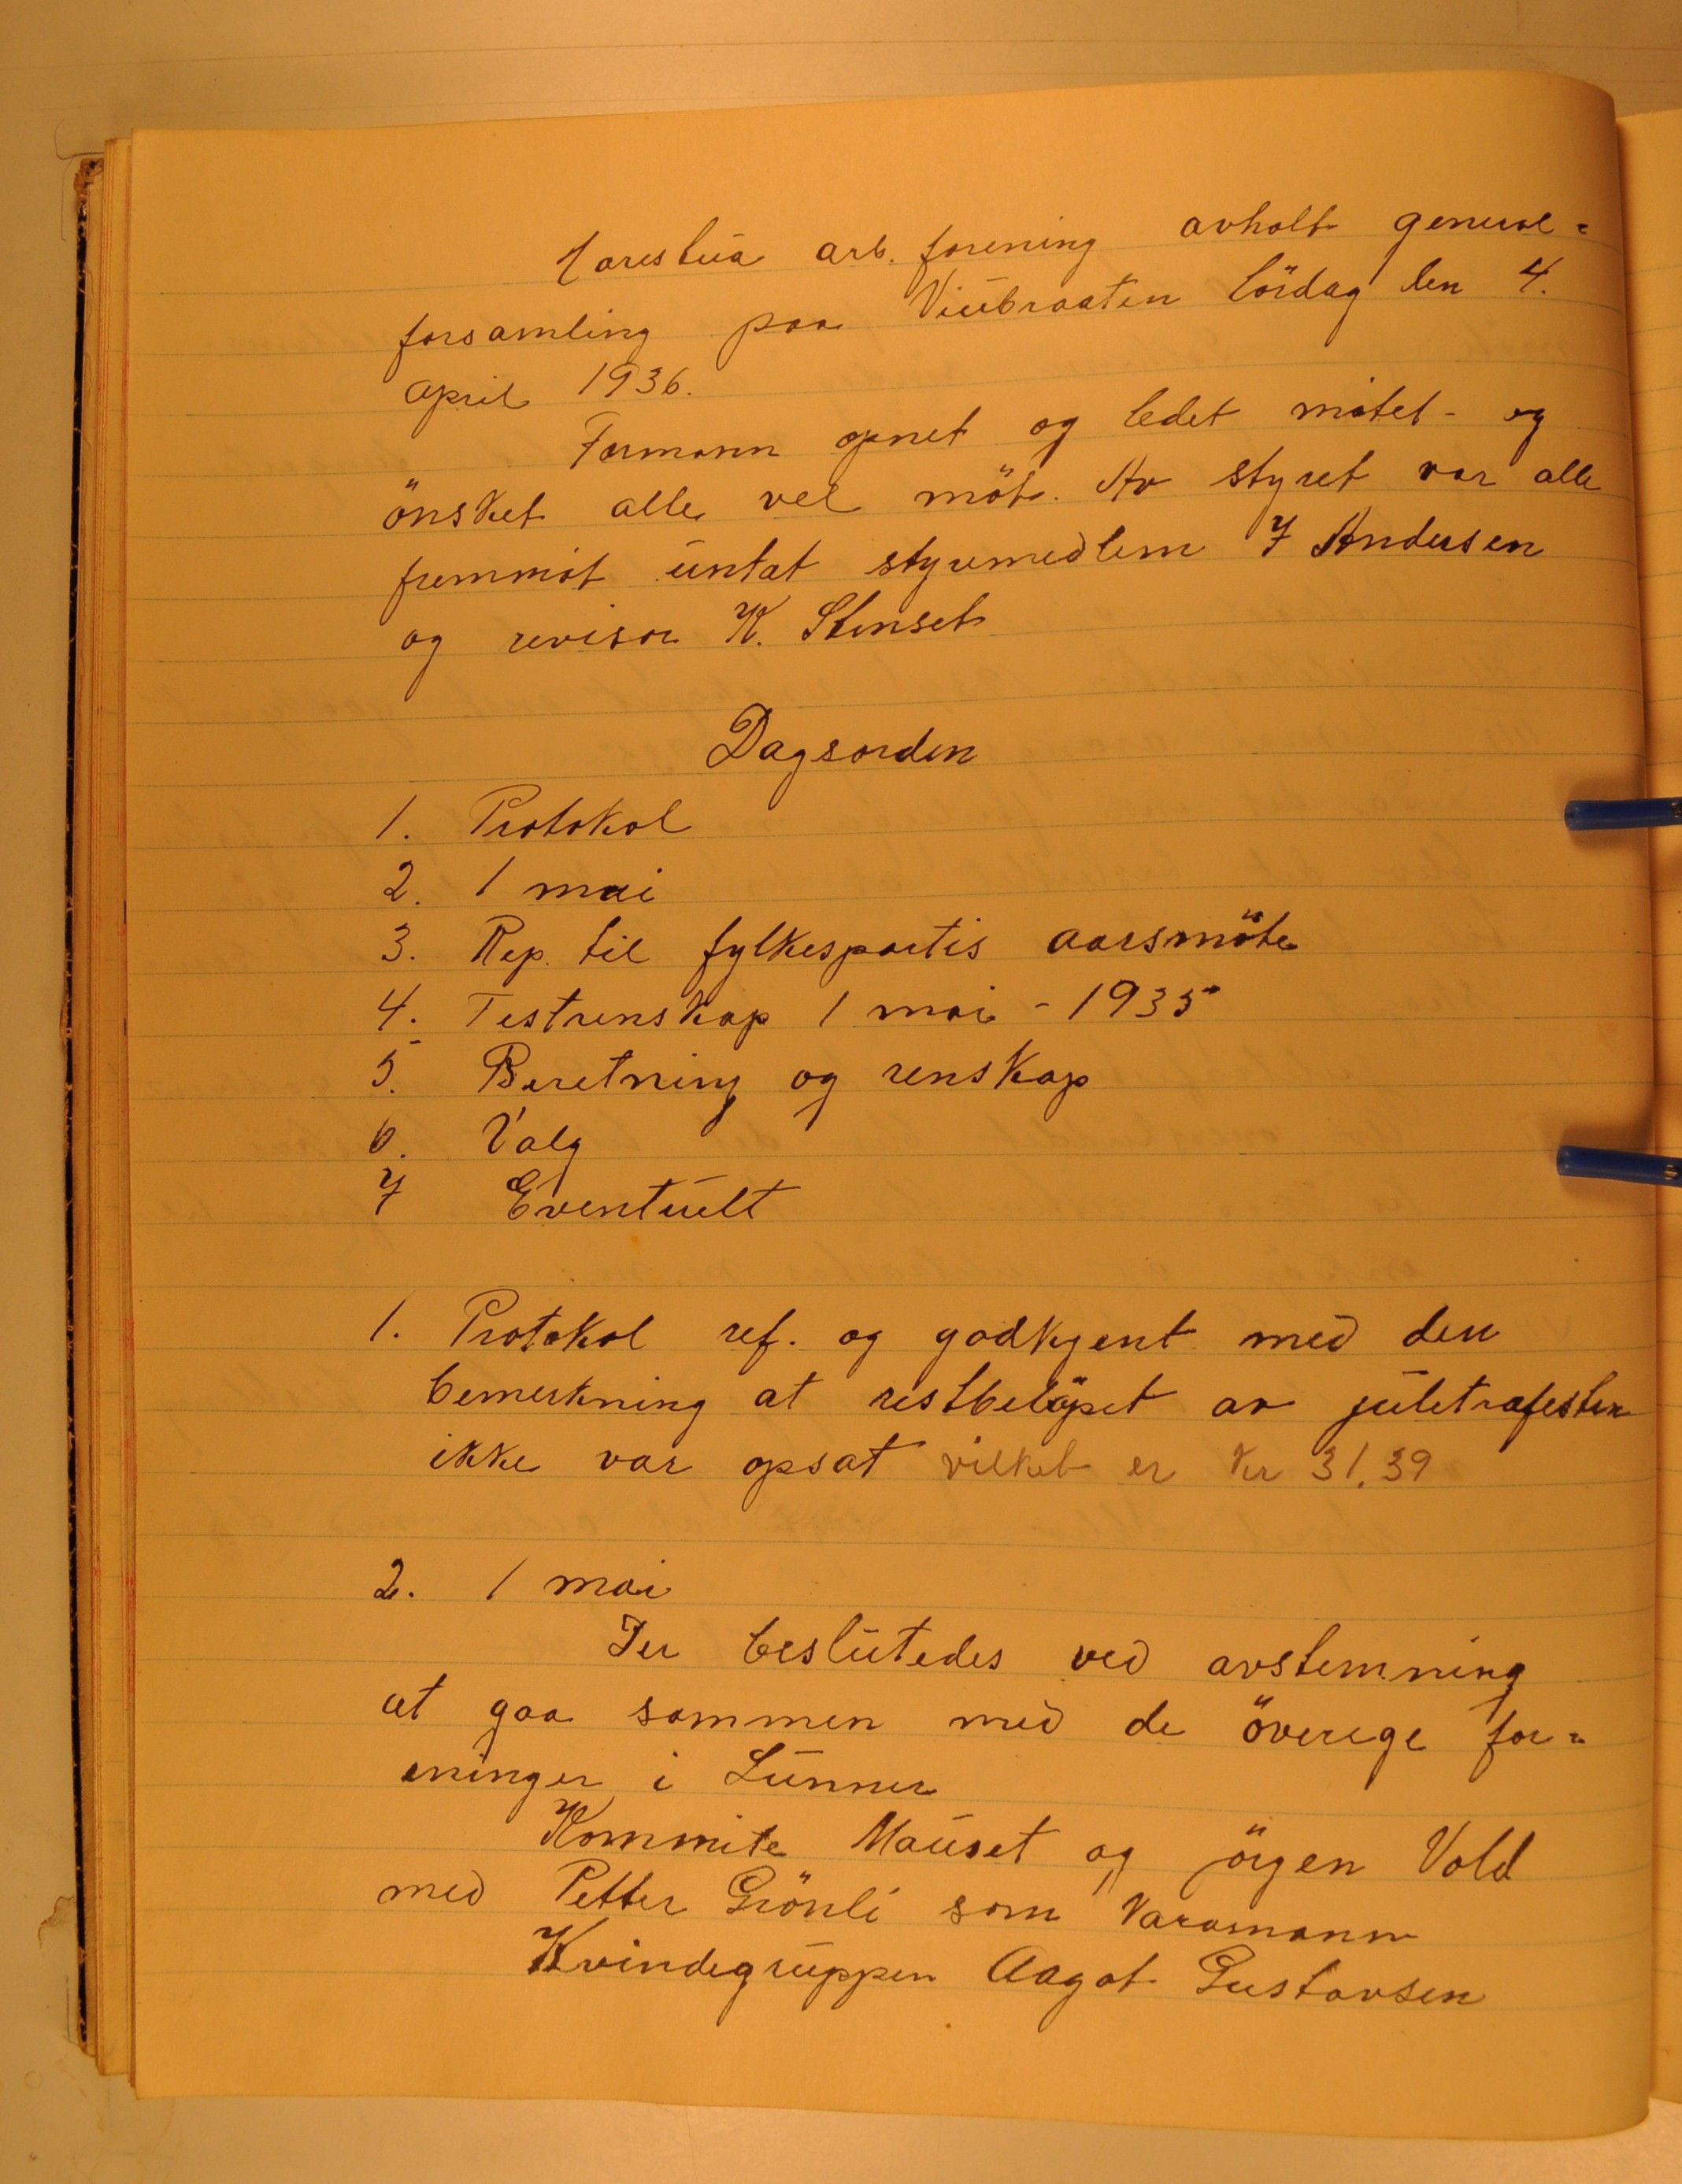 Harestua arb. forening avholt general=
forsamling paa Viubraaten lördag den 4.
april 1936.
Formann opnet og ledet mötet - og
önsket alle vel möt. Av styret var alle
fremmöt untat styremedlem J Andersen
og revisor K. Stenset
Dagsorden
1. Protokol
2. 1 mai
3. Rep. til fylkespartis aarsmöte
4. Festrenskap 1 mai - 1935
5. Beretning og renskap
6. Valg
7 Eventuelt
1. Protokol ref. og godkjent med den
bemerkning at restbelöpet av juletrafesten
ikke var opsat vilket er kr 31.39
2. 1 mai
Der beslutedes ved avstemning
at gaa sammen med de överige for=
eninger i Lunner
Kommite Mauset og jörgen Vold
med Petter Grönli som Varamann
Kvindegruppen Aagot Gustavsen